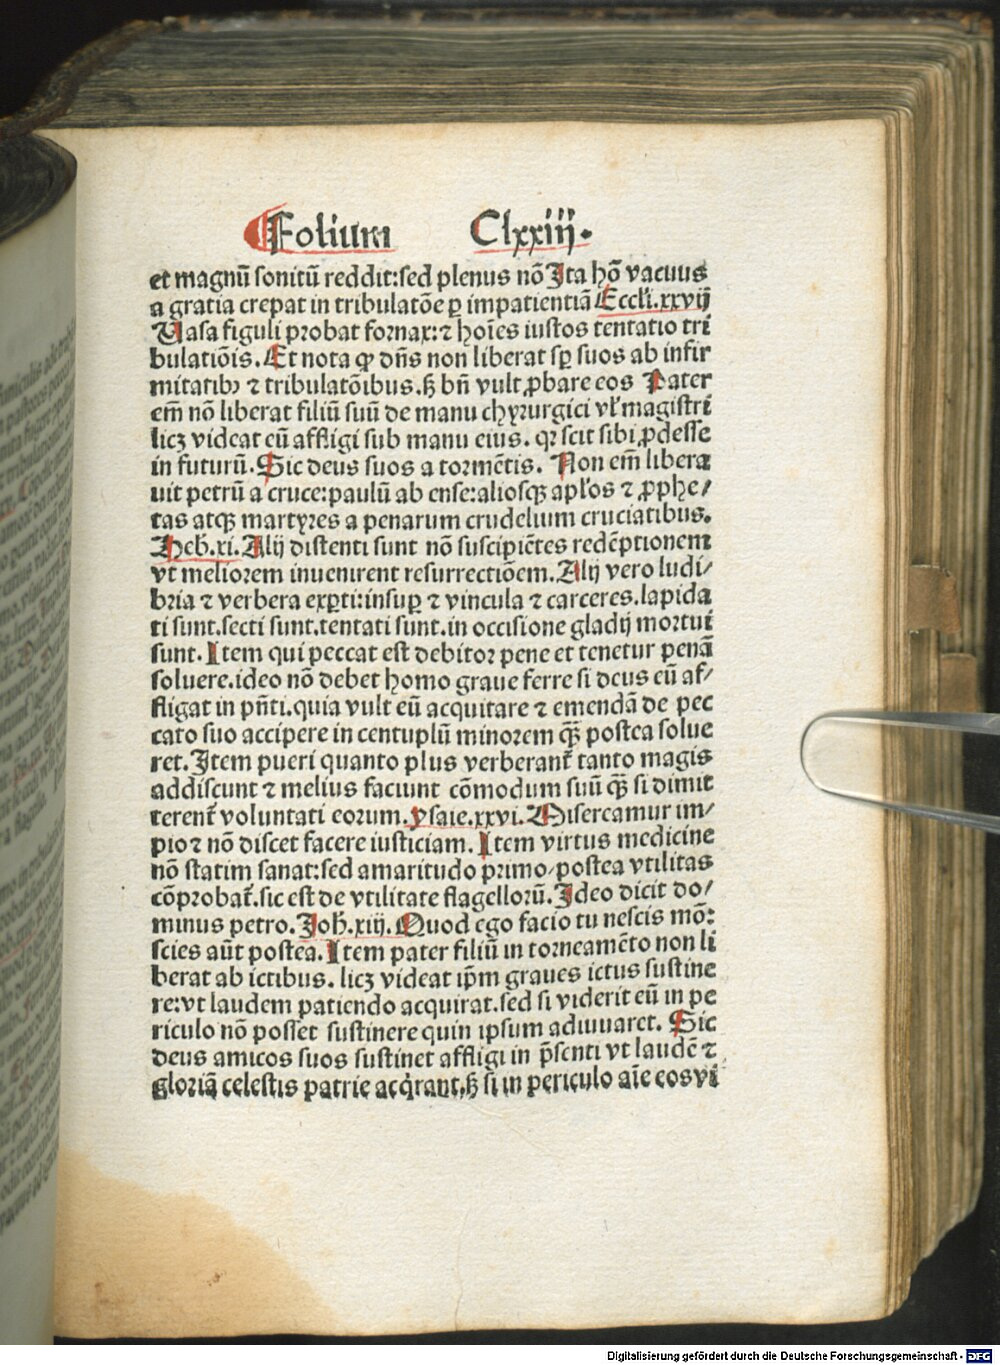 Folium Clxxiij.
et magnū sonitū reddit:sed plenus nō Ita hō vacuus
a gratia crepat in tribulatōe ꝑ impatientiā Eccłi.xxvij
Uasa figuli probat fornax:⁊ hoīes iustos tentatio tri
bulatiōis. Et nota ꝙ dn̄s non liberat sꝑ suos ab infir
mitatibꝰ ⁊ tribulatōibus.ꝫ bn̄ vult ꝓbare eos Pater
em̄ nō liberat filiū suū de manu chyrurgici vł magistri
licꝫ videat eū affligi sub manu eius. qꝛ scit sibi ꝓdesse
in futurū. Sic deus suos a tormētis. Non em̄ libera
uit petrū a cruce:paulū ab ense:aliosqꝫ apłos ⁊ ꝓphe/
tas atqꝫ martyres a penarum crudelium cruciatibus.
Heb̄.xi. Alij distenti sunt nō suscipiētes redēptionem
vt meliorem inuenirent resurrectiōem. Alij vero ludi/
bria ⁊ verbera exꝑti:insuꝑ ⁊ vincula ⁊ carceres.lapida
ti sunt.secti sunt.tentati sunt.in occisione gladij mortui
sunt. Item qui peccat est debitor pene et tenetur penā
soluere.ideo nō debet homo graue ferre si deus eū af/
fligat in pn̄ti.quia vult eū acquitare ⁊ emendā de pec
cato suo accipere in centuplū minorem qꝫ̄ postea solue
ret. Item pueri quanto plus verberant᷑ tanto magis
addiscunt ⁊ melius faciunt cōmodum suū qꝫ̄ si dimit
terent᷑ voluntati eorum. ysaie.xxvi. Misereamur im/
pio ⁊ nō discet facere iusticiam. Item virtus medicine
nō statim sanat:sed amaritudo primo/postea vtilitas
cōprobat᷑.sic est de vtilitate flagellorū. Ideo dicit do/
minus petro. Joh̄.xiij. Quod ego facio tu nescis mō:
scies aūt postea. Item pater filiū in torneamēto non li
berat ab ictibus. licꝫ videat ip̄m graues ictus sustine
re:vt laudem patiendo acquirat.sed si viderit eū in pe
riculo nō posset sustinere quin ipsum adiuuaret. Sic
deus amicos suos sustinet affligi in p̄senti vt laudē ⁊
gloriā celestis patrie acq̇rant.ꝫ si in periculo aīe eos vi
Digitalisierung gefördert durch die Deutsche Forschungsgemeinschaft - DFG